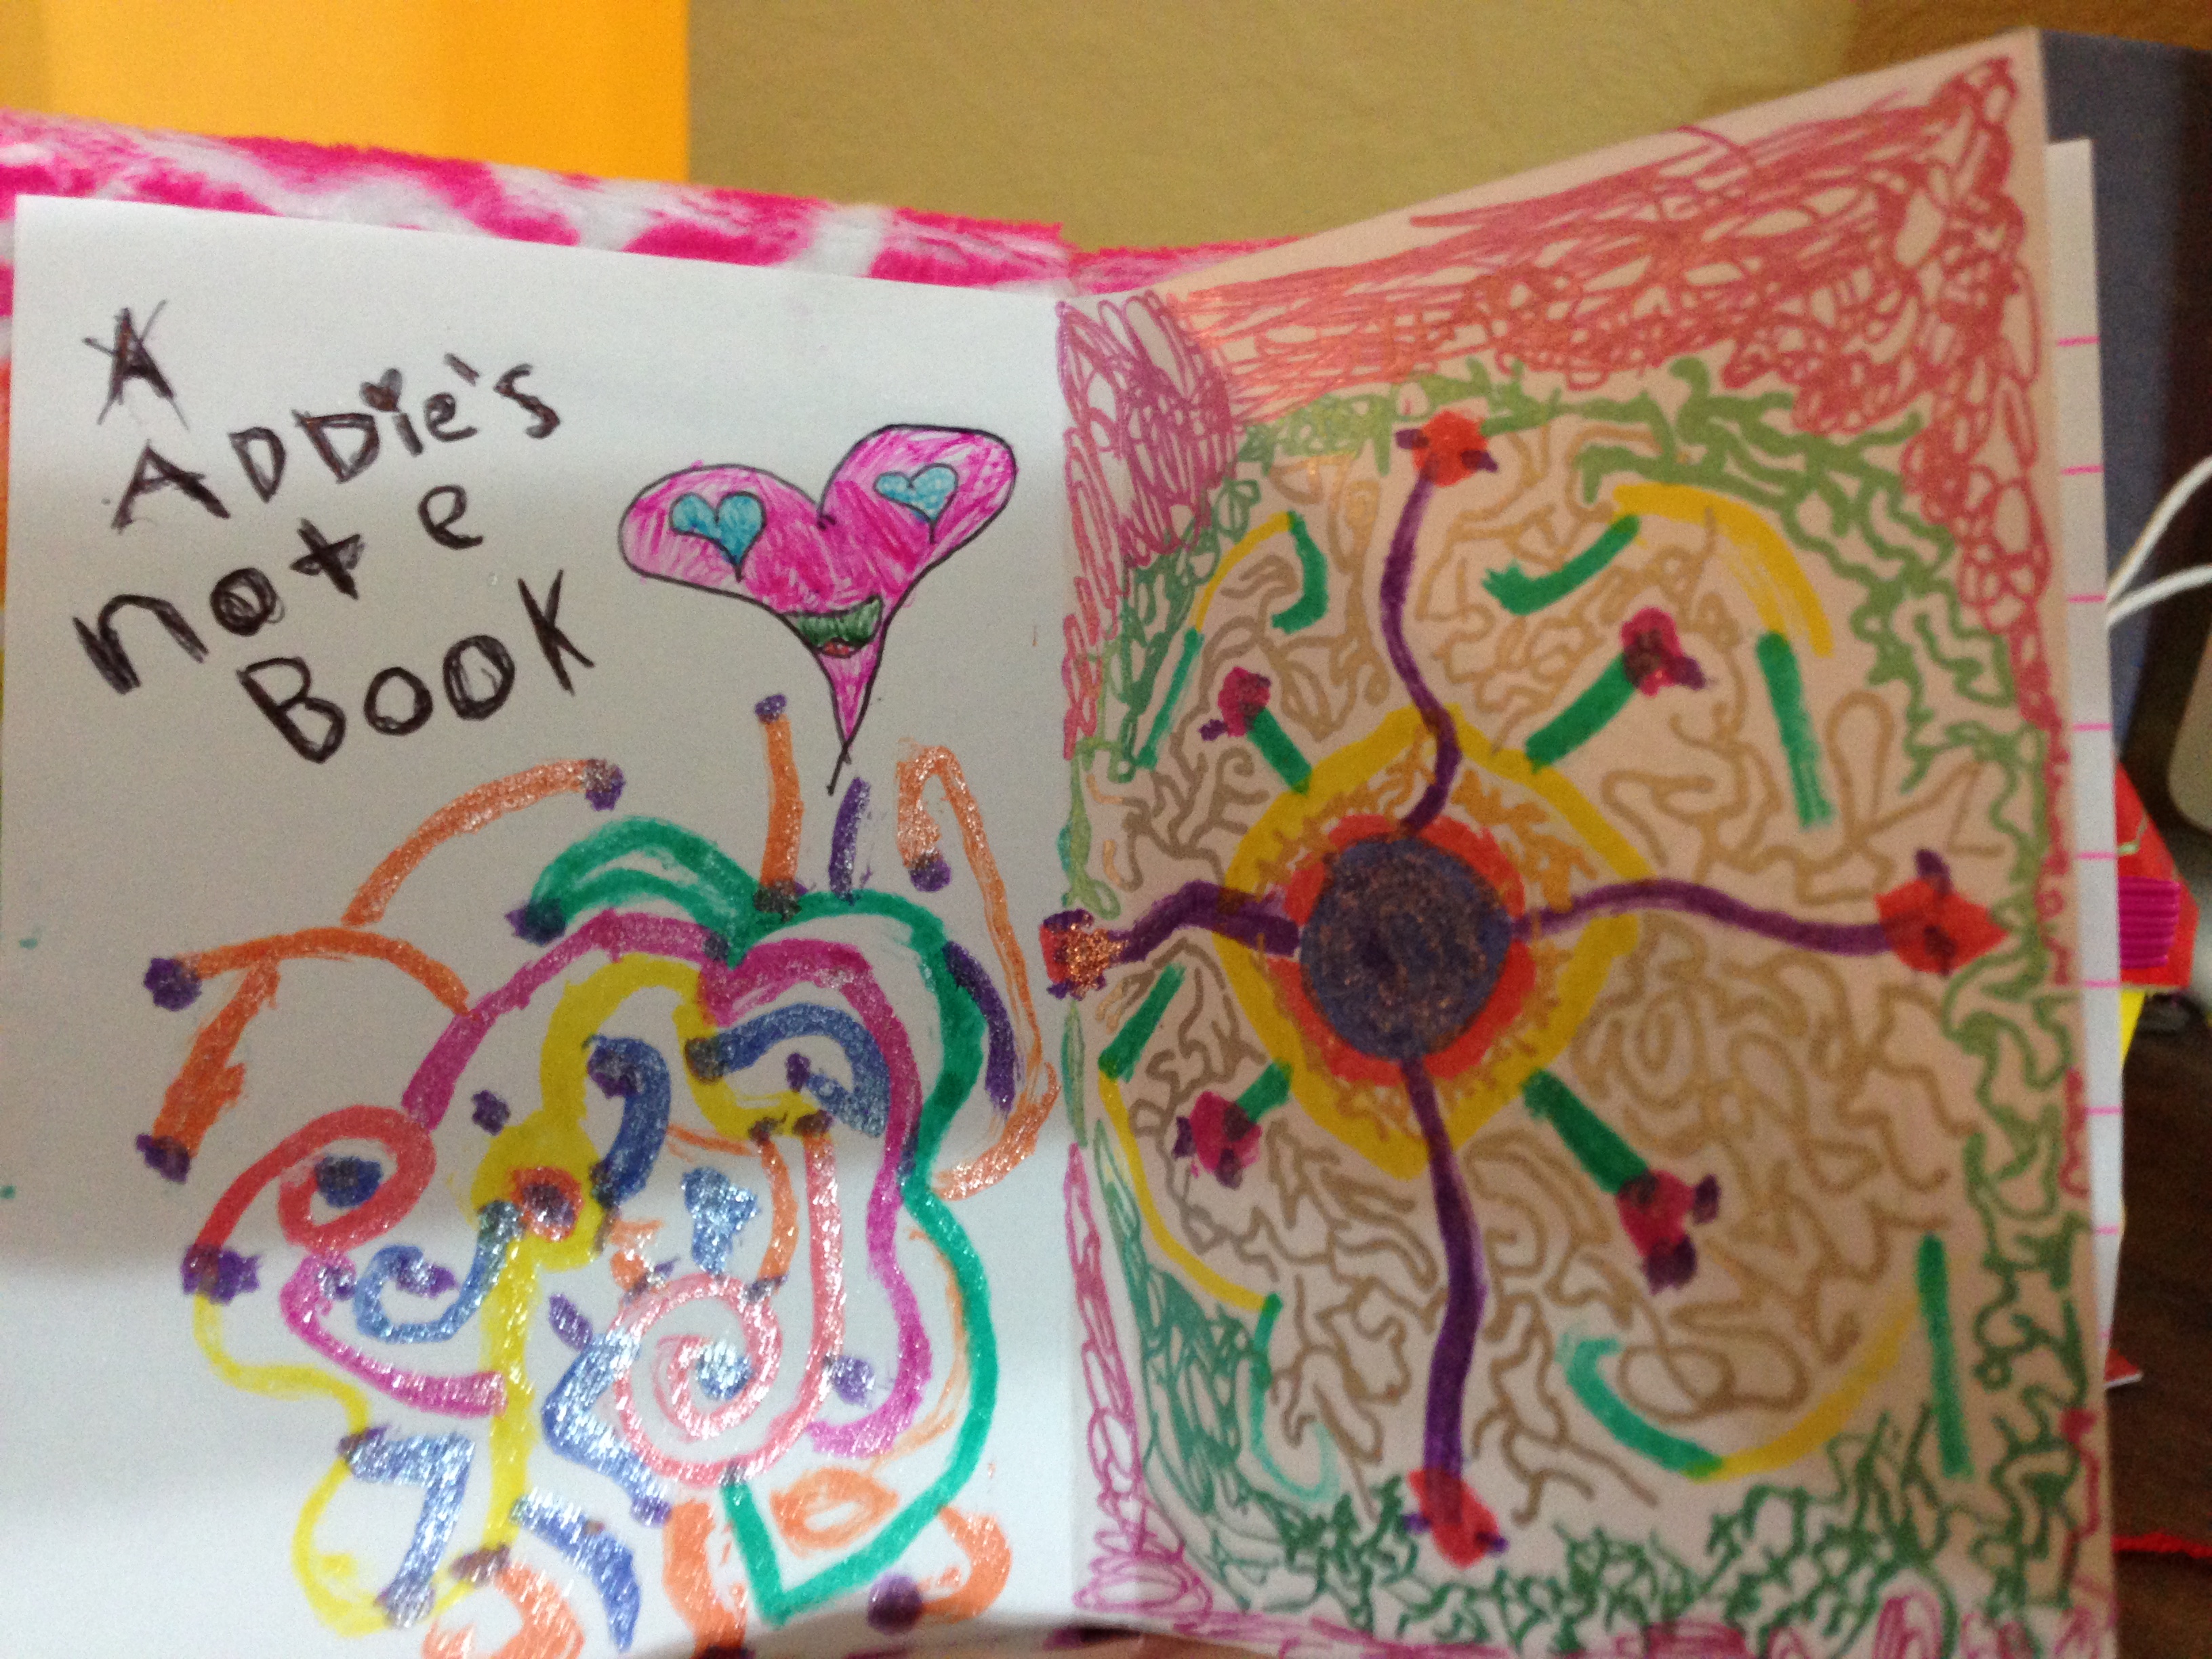 A
ADDie's
note
BOOK